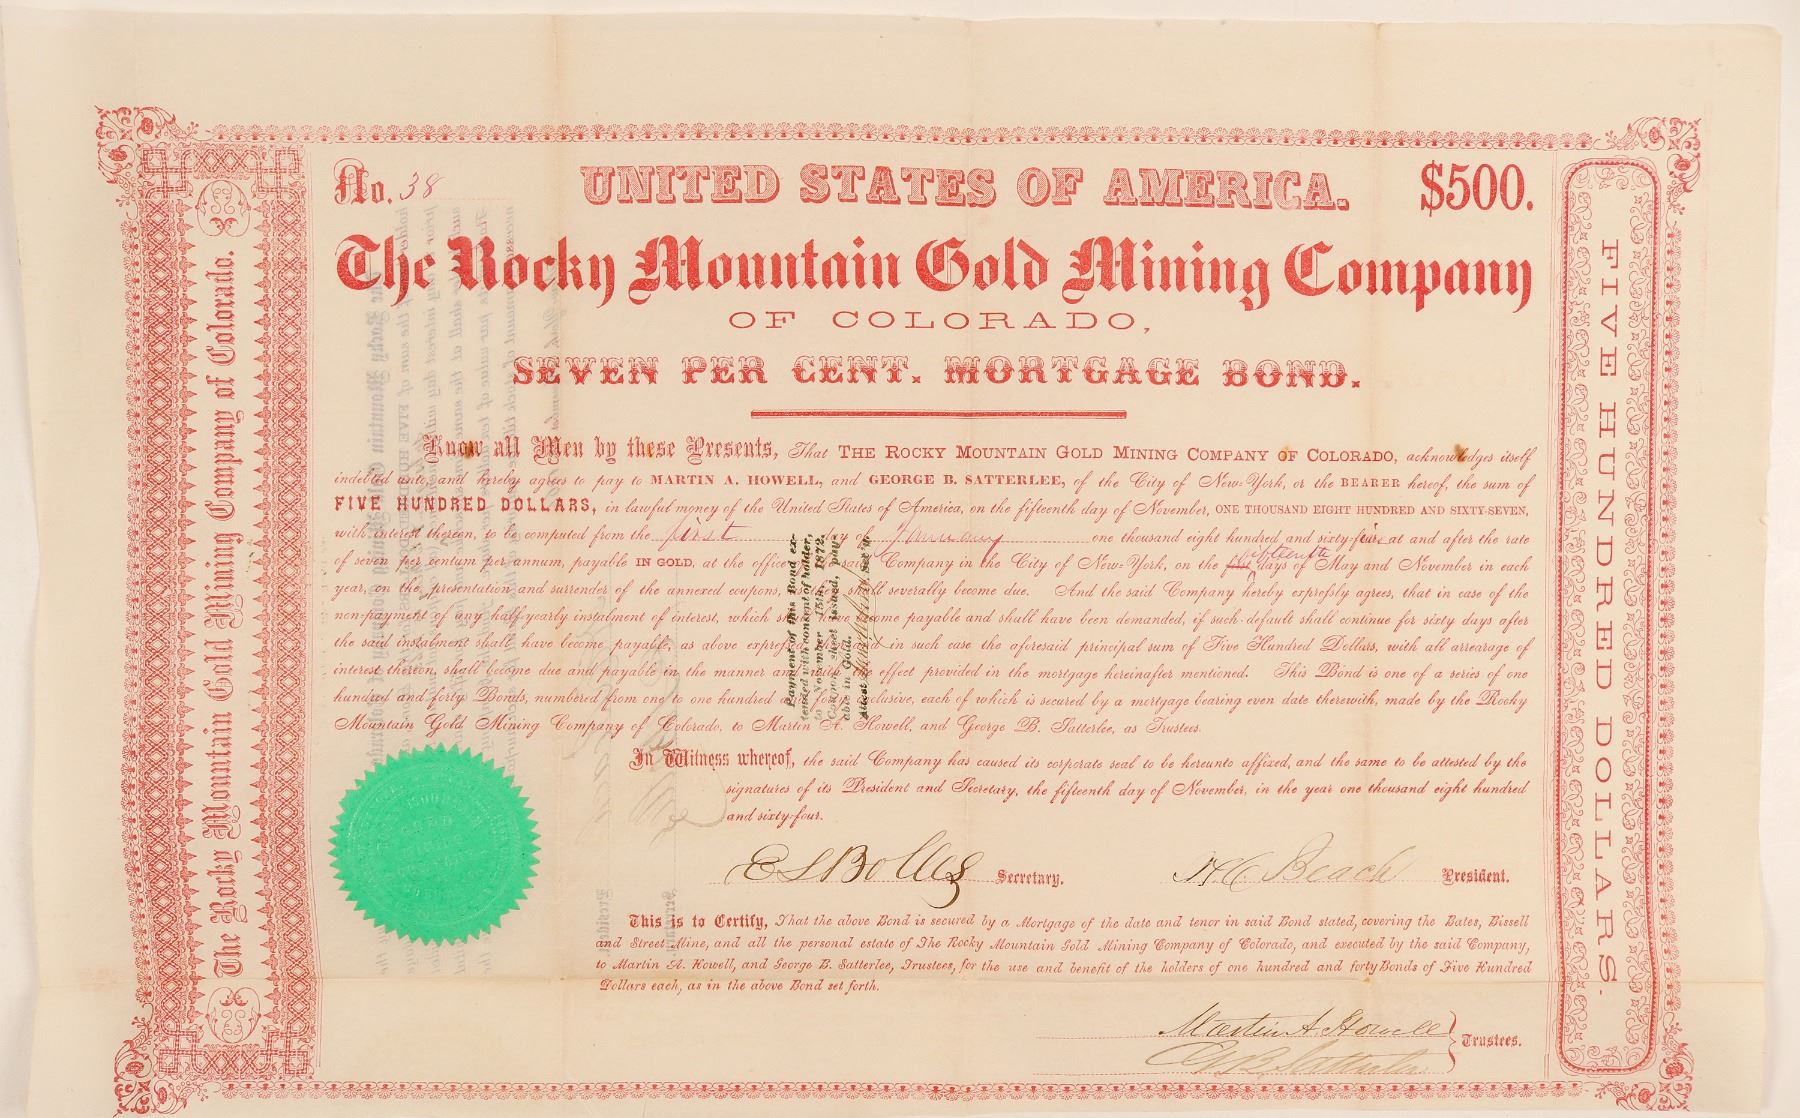 No. 38
UNITED STATES OF AMERICA.
$500.
The Rocky Mountain Gold Mining Company
OF COLORADO,
SEVEN PER CENT. MORTGAGE BOND.
Know all Men by these Presents, That THE ROCKY MOUNTAIN GOLD MINING COMPANY OF COLORADO, acknowledges itself
indebted unto, and hereby agrees to pay to MARTIN A. HOWELL, and GEORGE B. SATTERLEE, of the City of New-York, or the BEARER hereof, the sum of
FIVE HUNDRED DOLLARS, in lawful money of the United States of America, on the fifteenth day of November, ONE THOUSAND EIGHT HUNDRED AND SIXTY-SEVEN,
with interest thereon, to be computed from the first day of January one thousand eight hundred and sixty-five at and after the rate
of seven per centum per annum, payable IN GOLD, at the office of the said Company in the City of New-York, on the fifteenth days of May and November in each
year, on the presentation and surrender of the annexed coupons, as they shall severally become due. And the said Company hereby expressly agrees, that in case of the
non-payment of any half-yearly instalment of interest, which shall have become payable and shall have been demanded, if such default shall continue for sixty days after
the said instalment shall have become payable, as above expressed in such case the aforesaid principal sum of Five Hundred Dollars, with all arrearage of
interest thereon, shall become due and payable in the manner and with the effect provided in the mortgage hereinafter mentioned. This Bond is one of a series of one
hundred and forty Bonds, numbered from one to one hundred and forty inclusive, each of which is secured by a mortgage bearing even date therewith, made by the Rocky
Mountain Gold Mining Company of Colorado, to Martin A. Howell, and George B. Satterlee, as Trustees.
Payment of this Bond ex-
tended with consent of holder,
to November 15th, 1872.
Coupon sheet issued, pay-
able in Gold.
Attest Sec'y.
In Witness whereof, the said Company has caused its corporate seal to be hereunto affixed, and the same to be attested by the
signatures of its President and Secretary, the fifteenth day of November, in the year one thousand eight hundred
and sixty-four.
E S Bolles Secretary.
H C Beach President.
This is to Certify, That the above Bond is secured by a Mortgage of the date and tenor in said Bond stated, covering the Bates, Bissell
and Street Mine, and all the personal estate of The Rocky Mountain Gold Mining Company of Colorado, and executed by the said Company,
to Martin A. Howell, and George B. Satterlee, Trustees, for the use and benefit of the holders of one hundred and forty Bonds of Five Hundred
Dollars each, as in the above Bond set forth.
Martin A. Howell
G B Satterlee
Trustees.
The Rocky Mountain Gold Mining Company of Colorado.
FIVE HUNDRED DOLLARS.